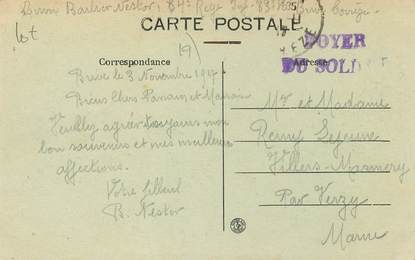 CARTE POSTALE
FOYER
DU SOLDAT
Correspondance
Adresse
Brive le 3 Novembre 1917
Biens Chers Parrain et Marraine
Veuillez agréer toujours mon
bon souvenir et mes meilleures
affections.
Votre filleul
B. Nestor
Mr et Madame
Remy Lejeune
Villers-Marmery
Par Verzy
Marne